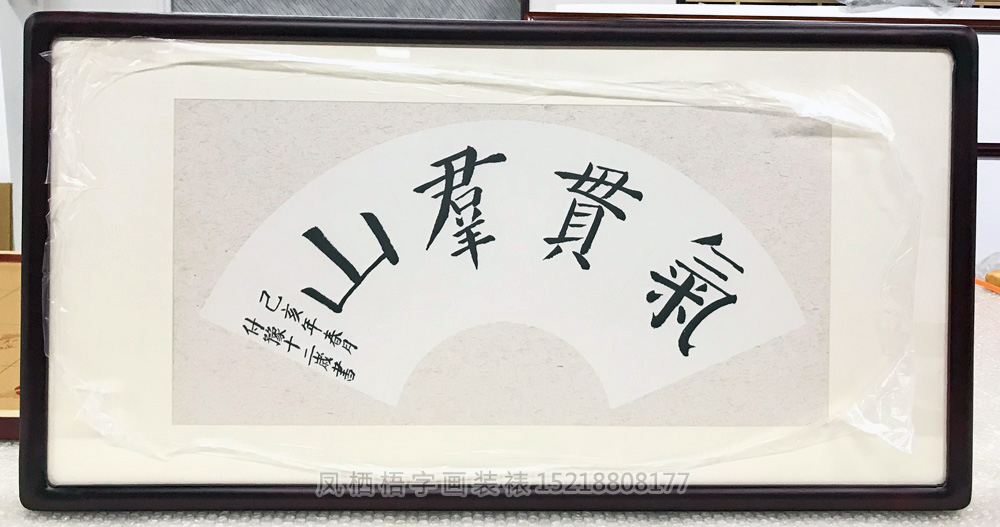 氣貫羣山
己亥年春月
付豫十二歲書
凤栖梧字画装裱15218808177